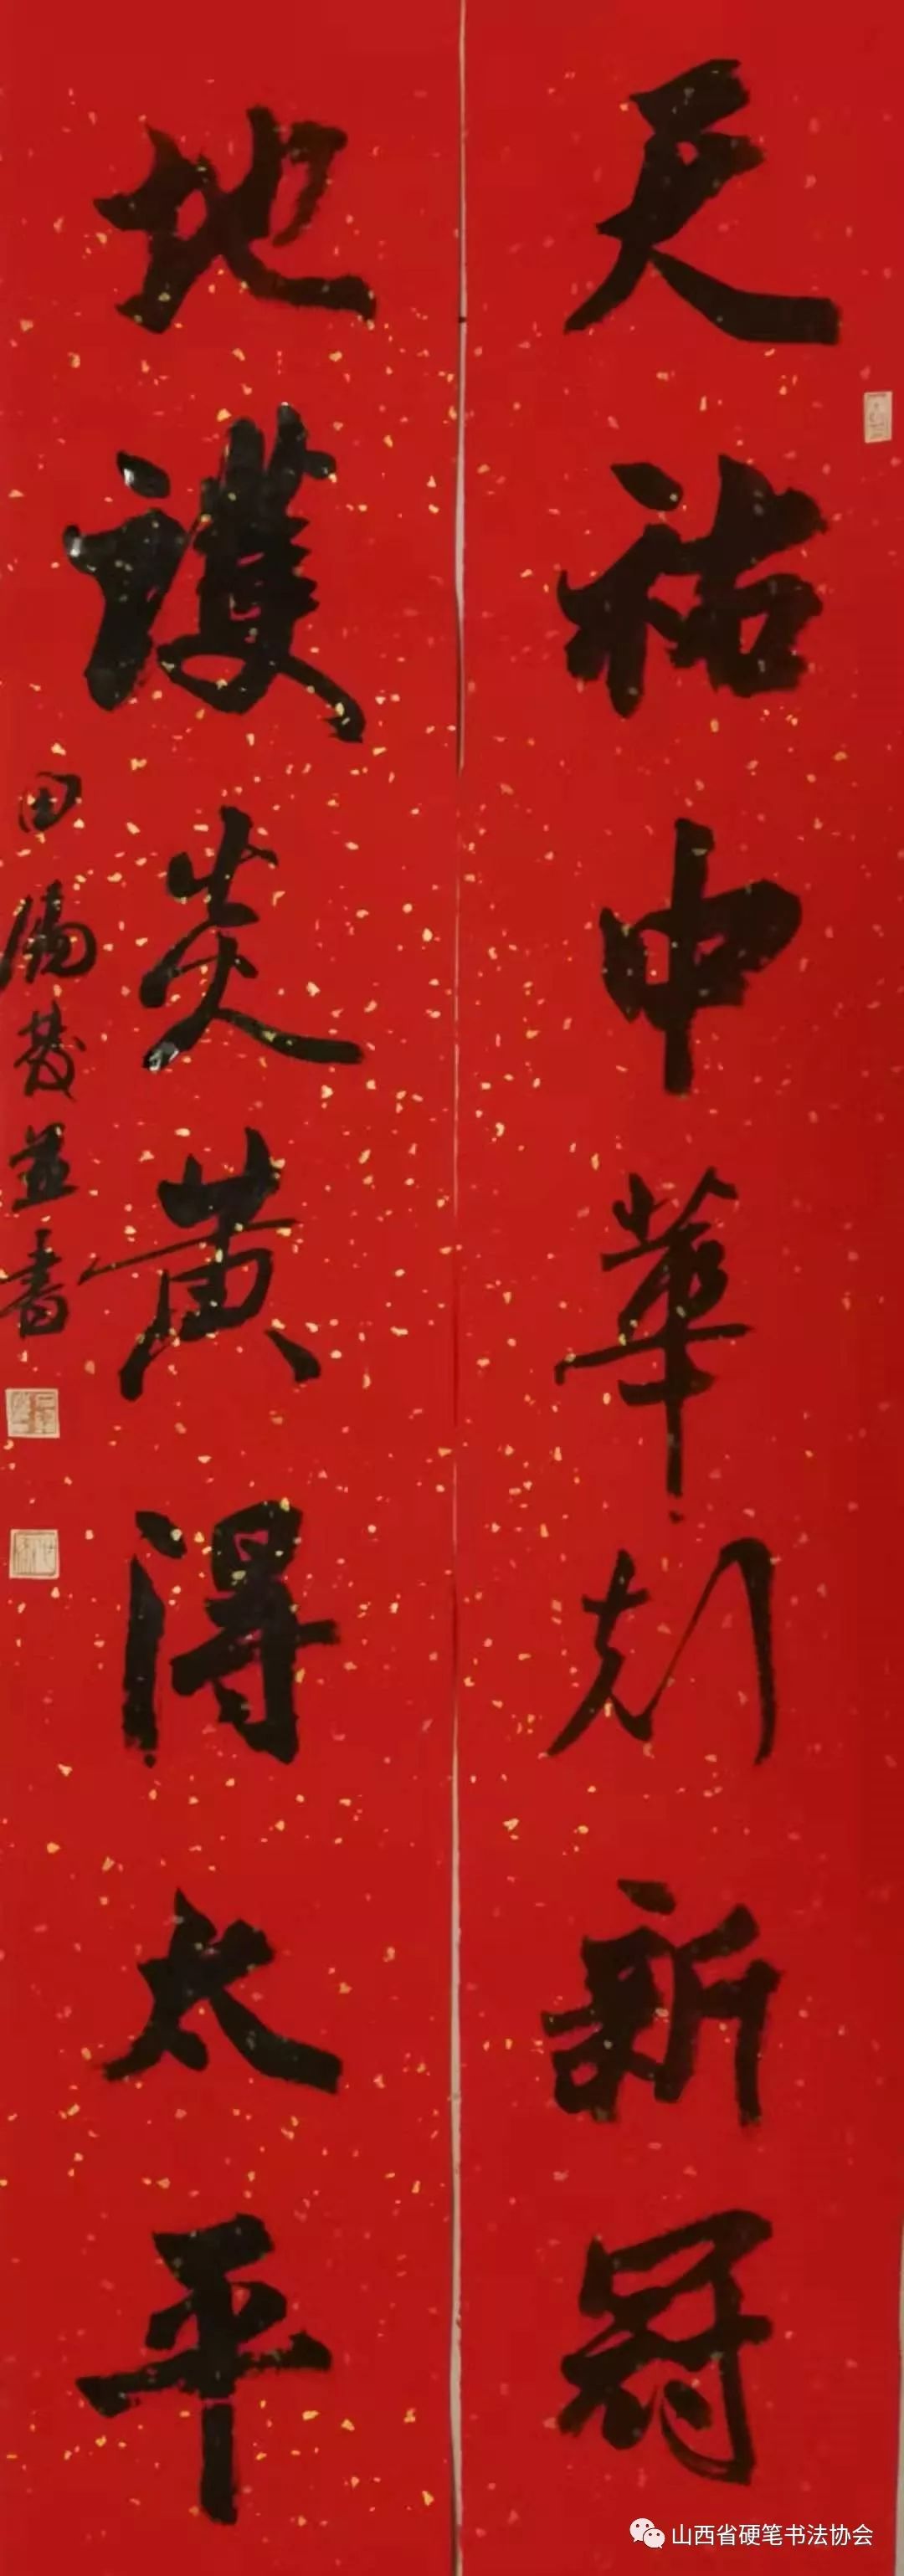 天祐中華刻新冠
地護炎黄得太平
田 并書
山西省硬笔书法协会